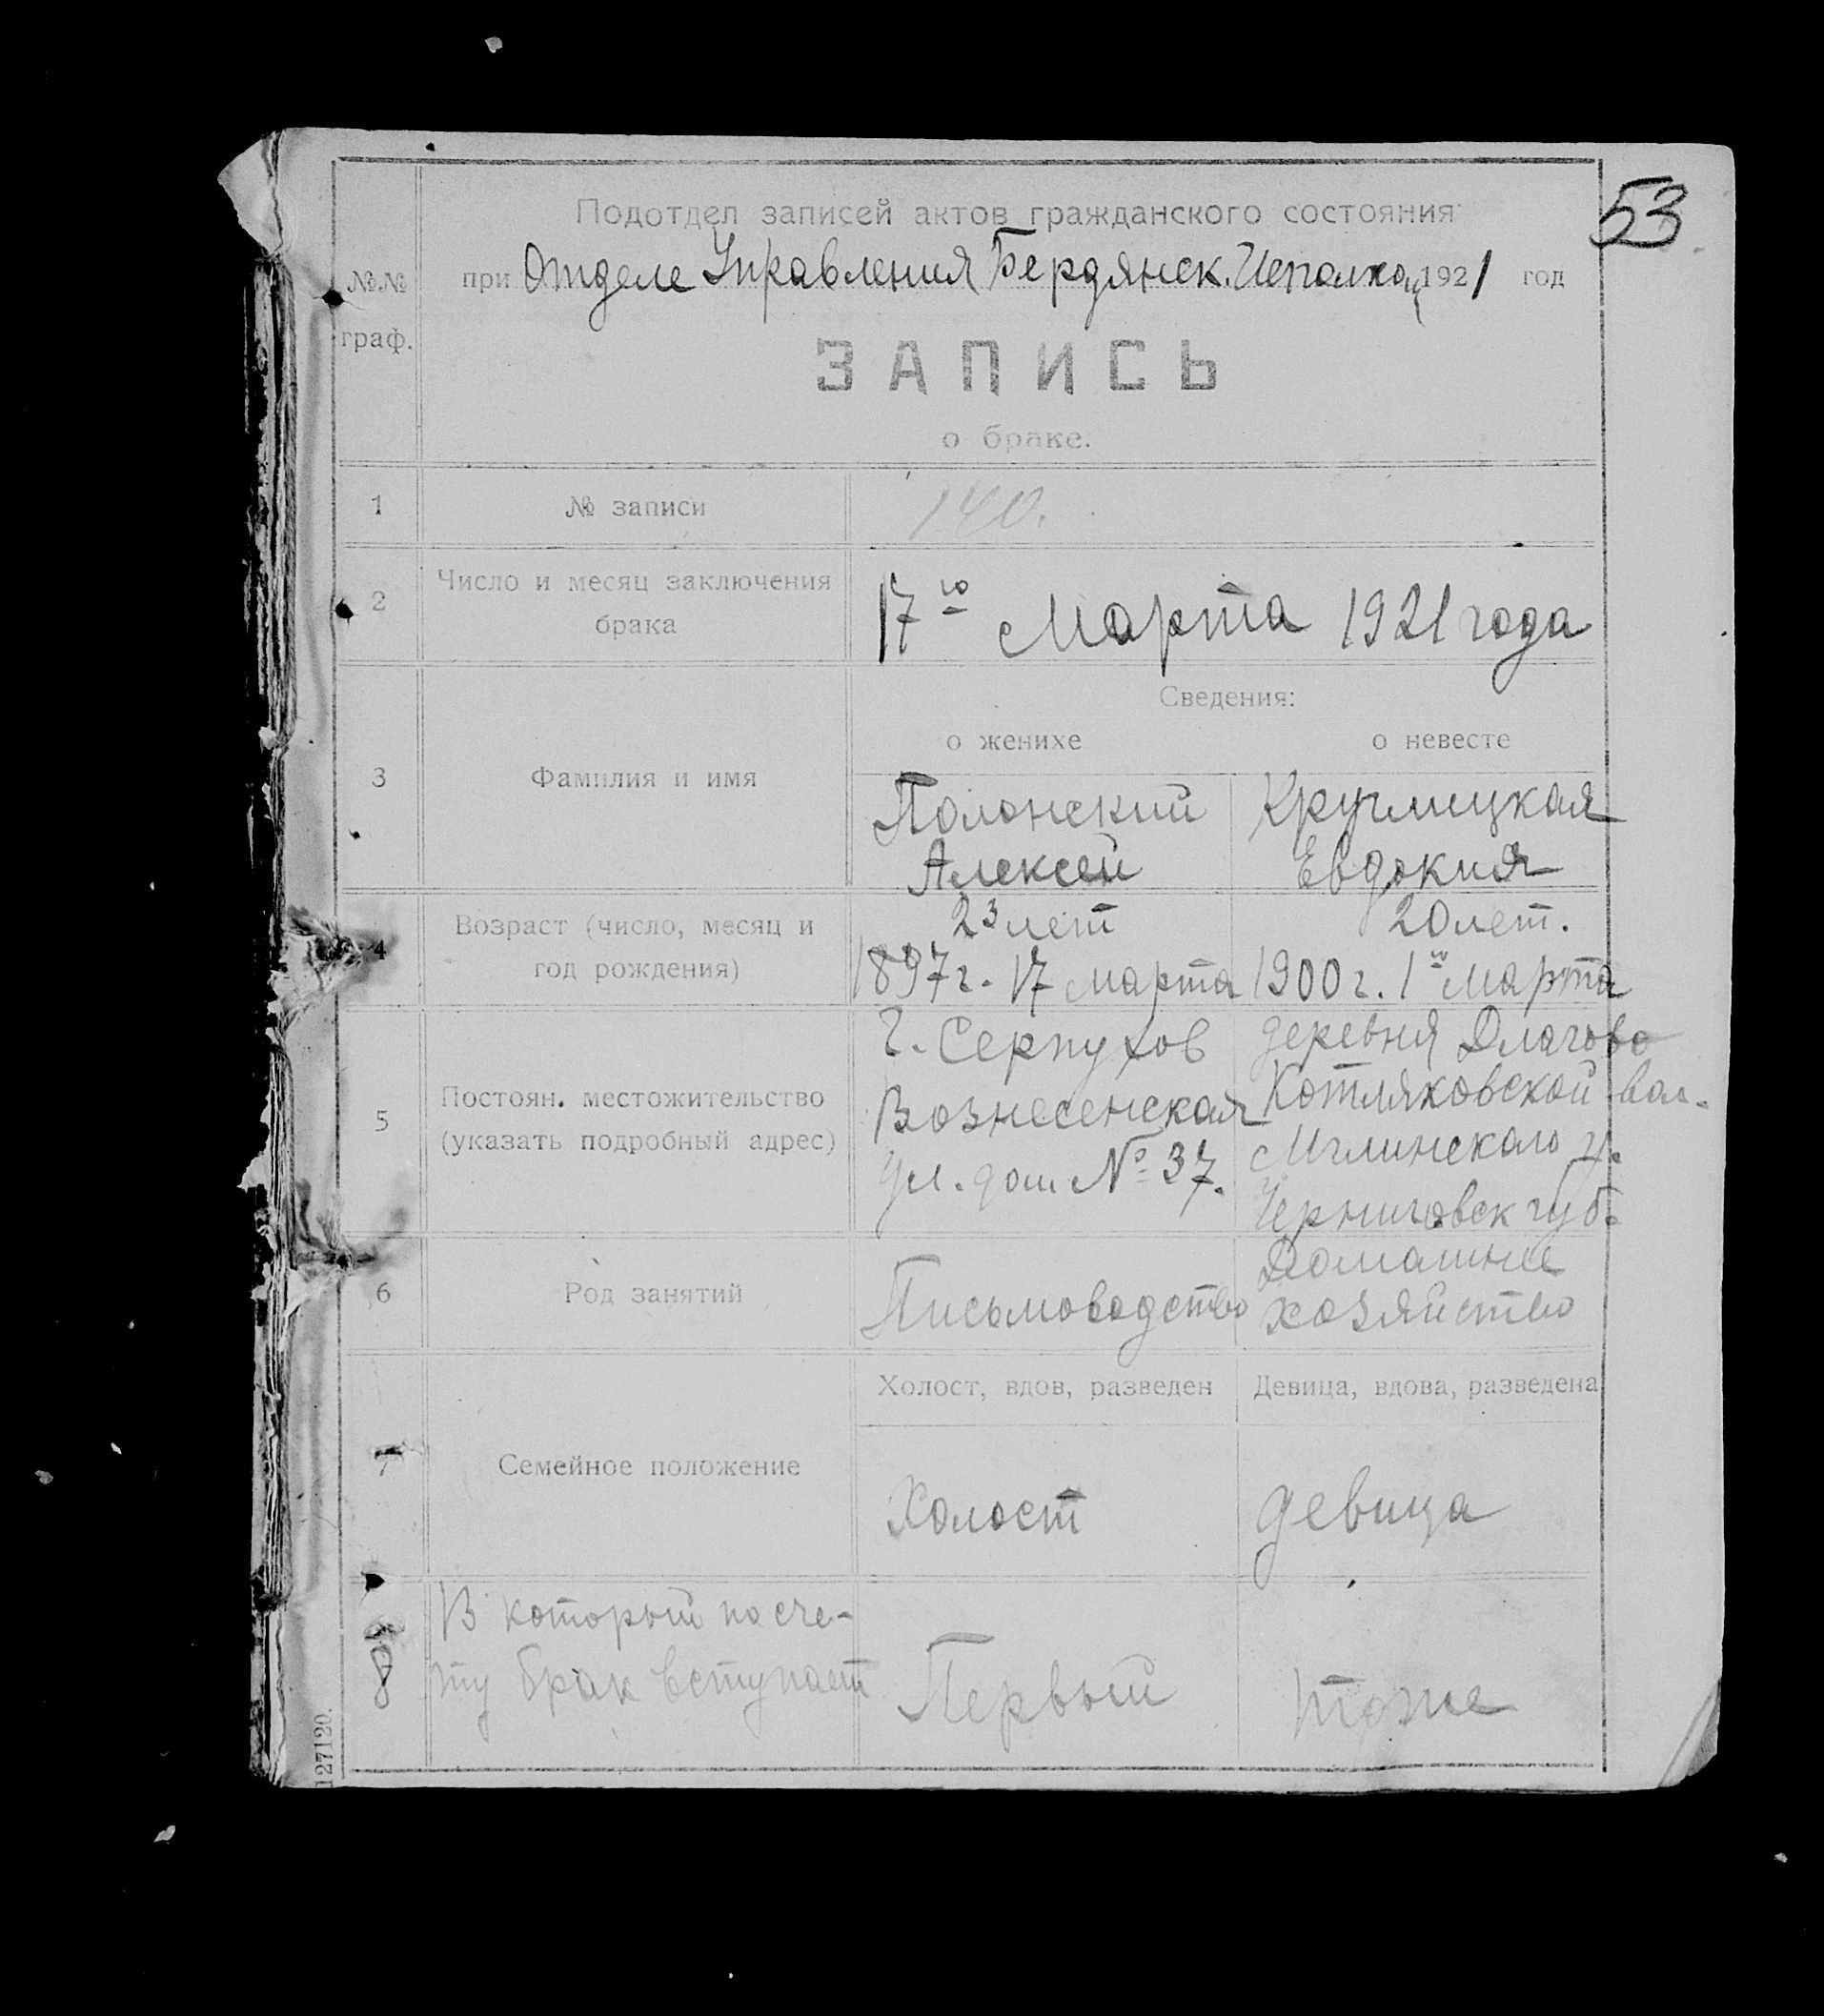 53
Подотдел записей актов гражданского состояния
при Отделе Управления Бердянск. Исполко 1921 год
№№ граф.
ЗАПИСЬ
о браке.
1 № записи 140.
2 Число и месяц заключения брака
17го Марта 1921 года
Сведения:
о женихе о невесте
3 Фамилия и имя
Полонский Круглицкая
Алексей Евдокия
4 Возраст (число, месяц и год рождения)
23 лет 20 лет.
1897 г. 17 марта 1900 г. 1го Марта
5 Постоян. местожительство
(указать подробный адрес)
г. Серпухов
Вознесенская
ул. дом № 37.
деревня
Котляковской вол.
Мглинского у.
Черниговск губ.
6 Род занятий
Письмоводство
Домашнее
хозяйство
Холост, вдов, разведен Девица, вдова, разведена
7 Семейное положение
Холост девица
8 В который по сче-
ту брак вступает
Первый тоже
127120.